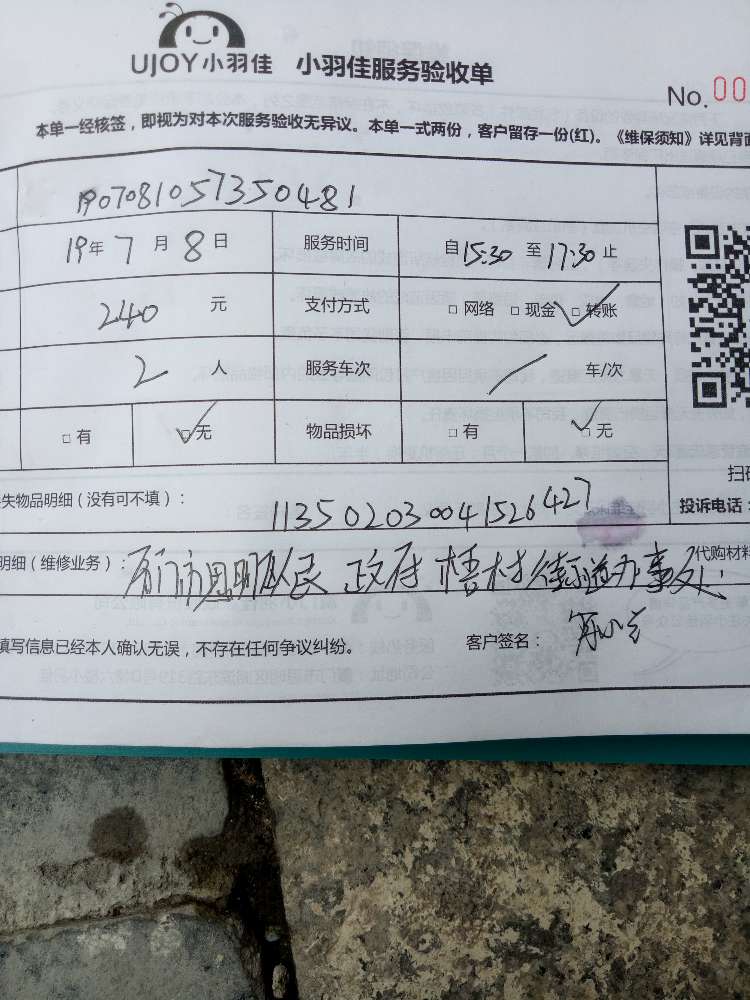 UJOY小羽佳 小羽佳服务验收单
No.00
本单一经核签，即视为对本次服务验收无异议。本单一式两份，客户留存一份(红)。《维保须知》详见背面
1907081057350481
19年7月8日 服务时间 自15:30至17:30止
240元 支付方式 □网络 □现金 ☑转账
2人 服务车次 / 车/次
□有 ☑无 物品损坏 □有 ☑无
失物品明细（没有可不填）： 113502030041526427
扫码
投诉电话：
明细（维修业务）： 厦门市思明区人民政府梧村街道办事处 代购材料
填写信息已经本人确认无误，不存在任何争议纠纷。 客户签名：